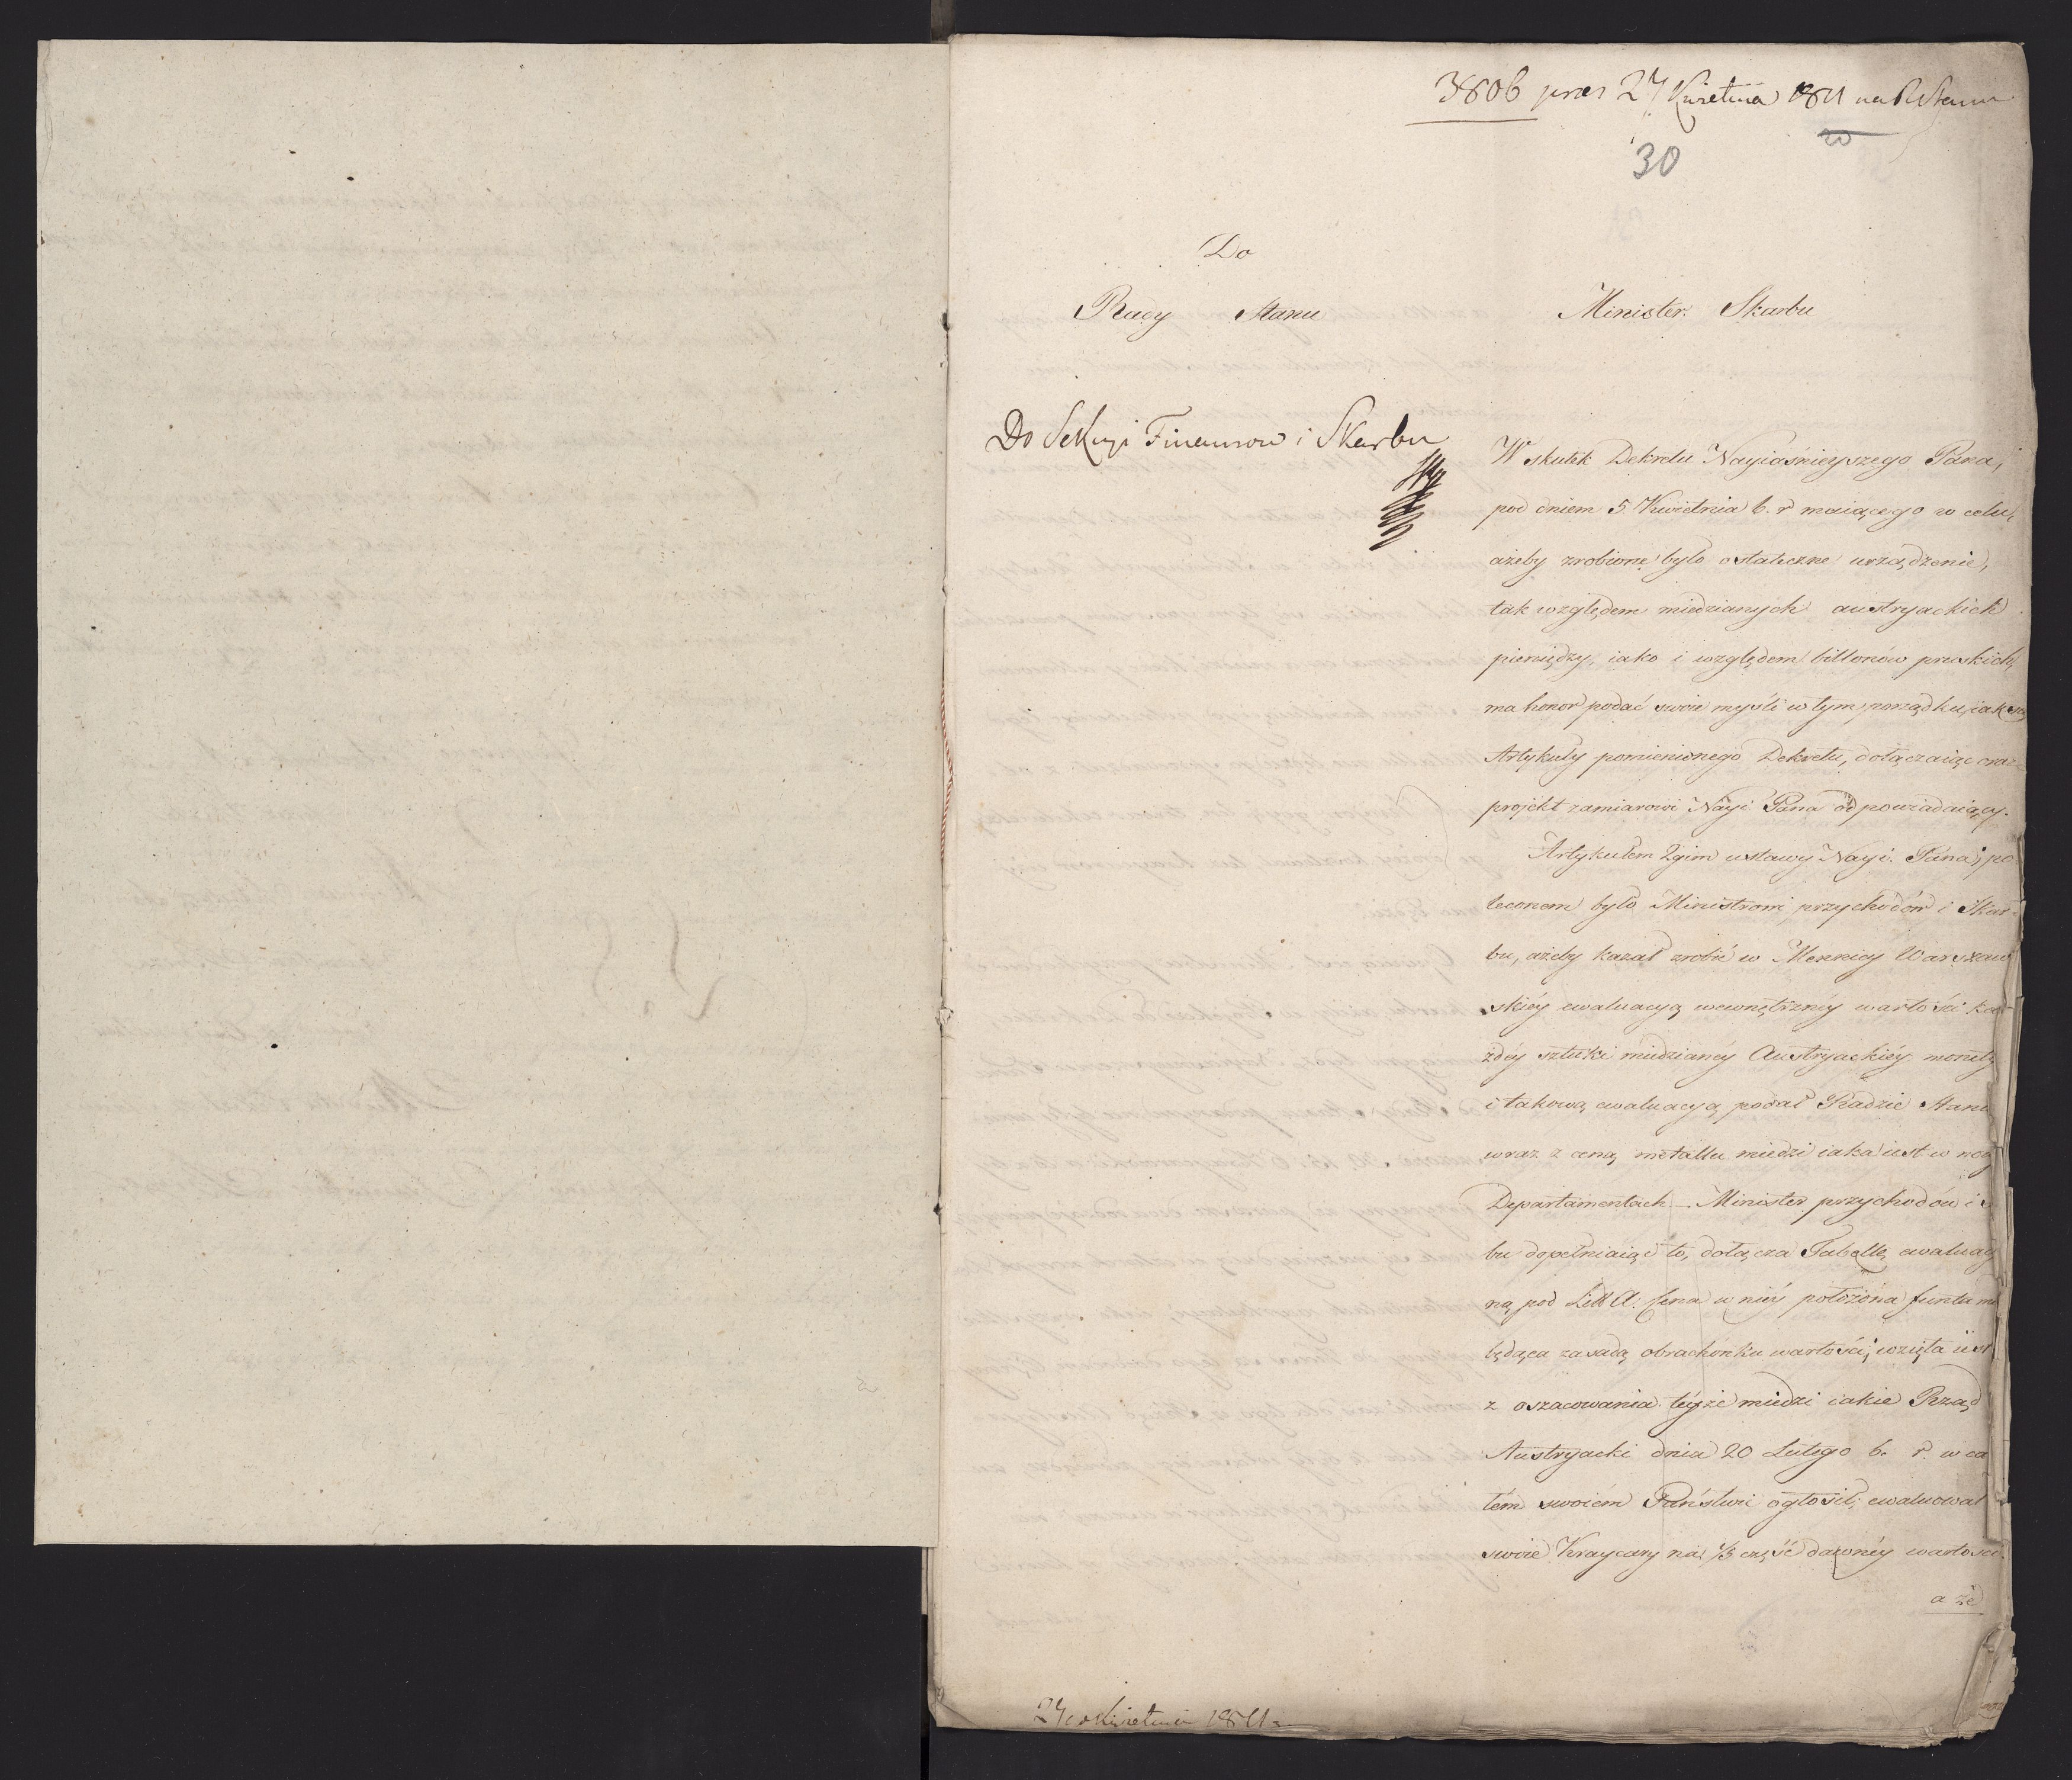 3806 prez 27 Kwietnia 1811 na R Stanu
20
30
Do
Rady Stanu
Minister Skarbu
Do Sekcyi Finansow i Skarbu
W skutek Dekretu Nayiaśnieyszego Pana,
pod dniem 5. Kwietnia b. r maiącego w celu,
ażeby zrobione było ostateczne urządzenie,
tak względem miedzianych austryackich
pieniędzy, iako i względem billonów pruskich,
ma honor podać swoie myśli w tym porządku, iak są
Artykuły pomienionego Dekretu, dołączaiąc oraz
projekt zamiarowi Nayi Pana odpowiadaiący.
Artykułem 2gim ustawy Nayi. Pana, po
leconem było Ministrowi przychodów i Skar-
bu, ażeby kazał zrobić w Mennicy Warszaw
skiéy ewaluacyą wewnętrznéy wartości ka-
żdéy sztuki miedzianéy Austryackiéy monety
i takową ewaluacyą podał Radzie Stanu
wraz z ceną metallu miedzi iaka iest w
Departamentach – Minister przychodów i
bu dopełniaiąc to, dołącza Tabellę ewaluacy
ną pod Litt A: Cena w niéy położona funta
będąca zasadą obrachunku wartości, wzięta iest
z oszacowania téyże miedzi iakie Rząd
Austryacki dnia 20 Lutego b. r. w ca
łém swoiém Państwie ogłosił; ewaluował
swoie Kraycary na 1/5 część dawnéy wartości.
a że
27 Kwietnia 1811